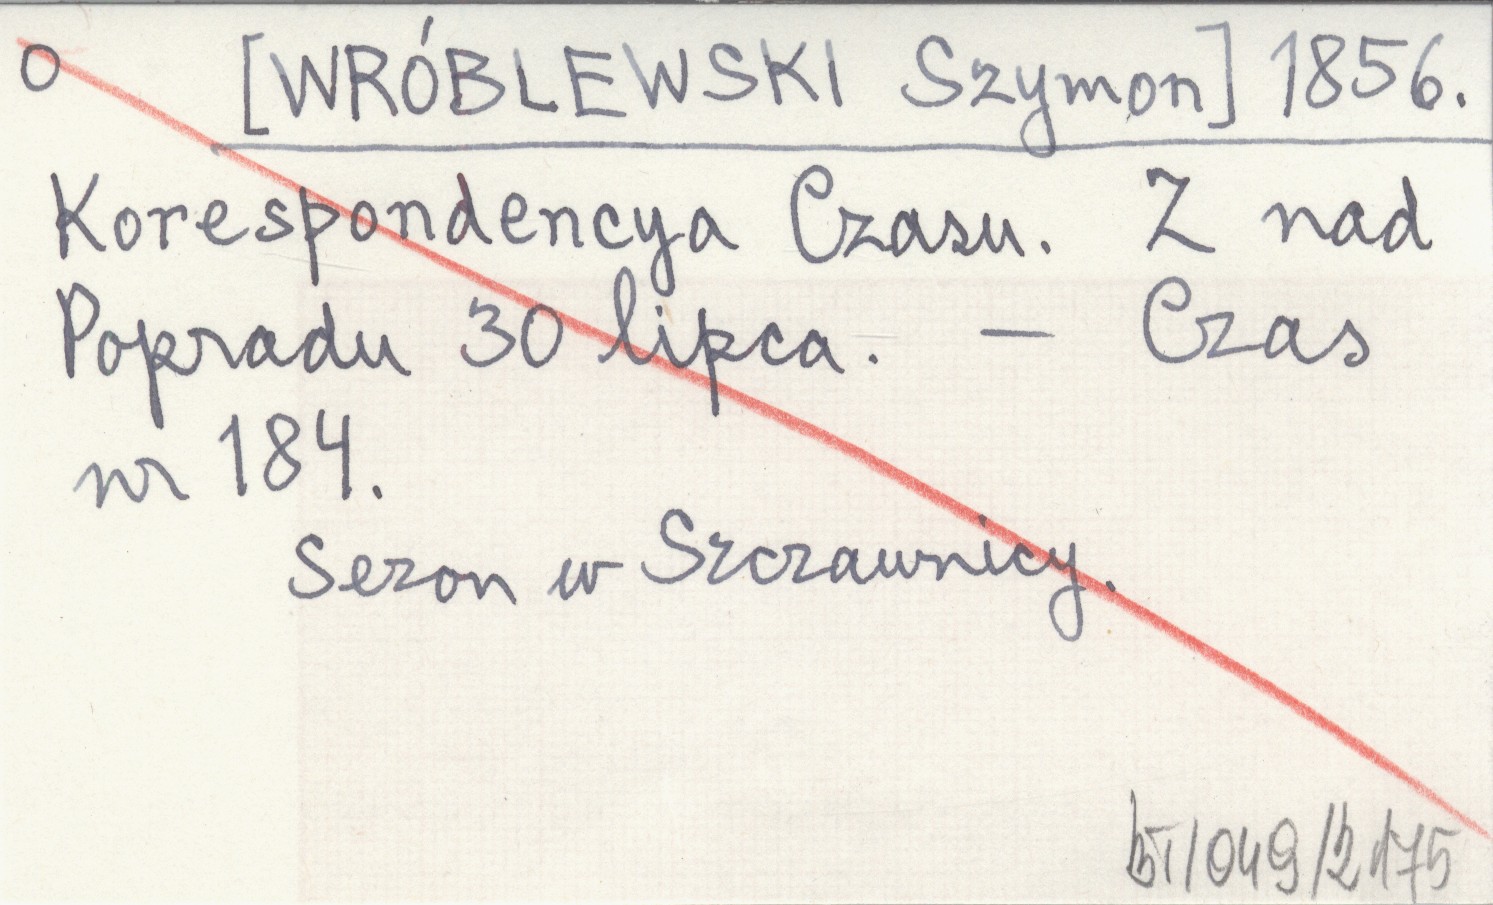 O [WRÓBLEWSKI Szymon] 1856.
Korespondencya Czasu. Z nad
Popradu 30 lipca. — Czas
nr 184.
Sezon w Szczawnicy.